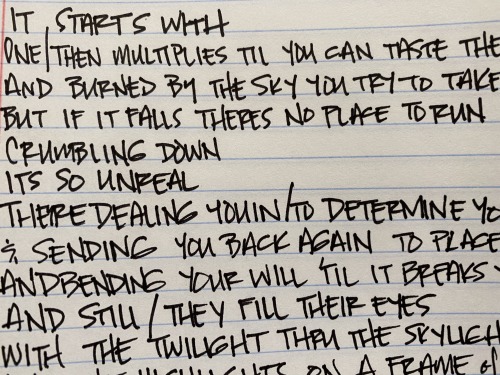 IT STARTS WITH
ONE/THEN MULTIPLIES TIL YOU CAN TASTE THE
AND BURNED BY THE SKY YOU TRY TO TAKE
BUT IF IT FALLS THERES NO PLACE TO RUN
CRUMBLING DOWN
ITS SO UNREAL
THEIRE DEALING YOU IN/TO DETERMINE YO
& SENDING YOU BACK AGAIN TO PLACE
AND BENDING YOUR WILL 'TIL IT BREAKS
AND STILL/THEY FILL THEIR EYES
WITH THE TWILIGHT THRU THE SKYLIGH
HIGHLIGHTS ON A FRAME of